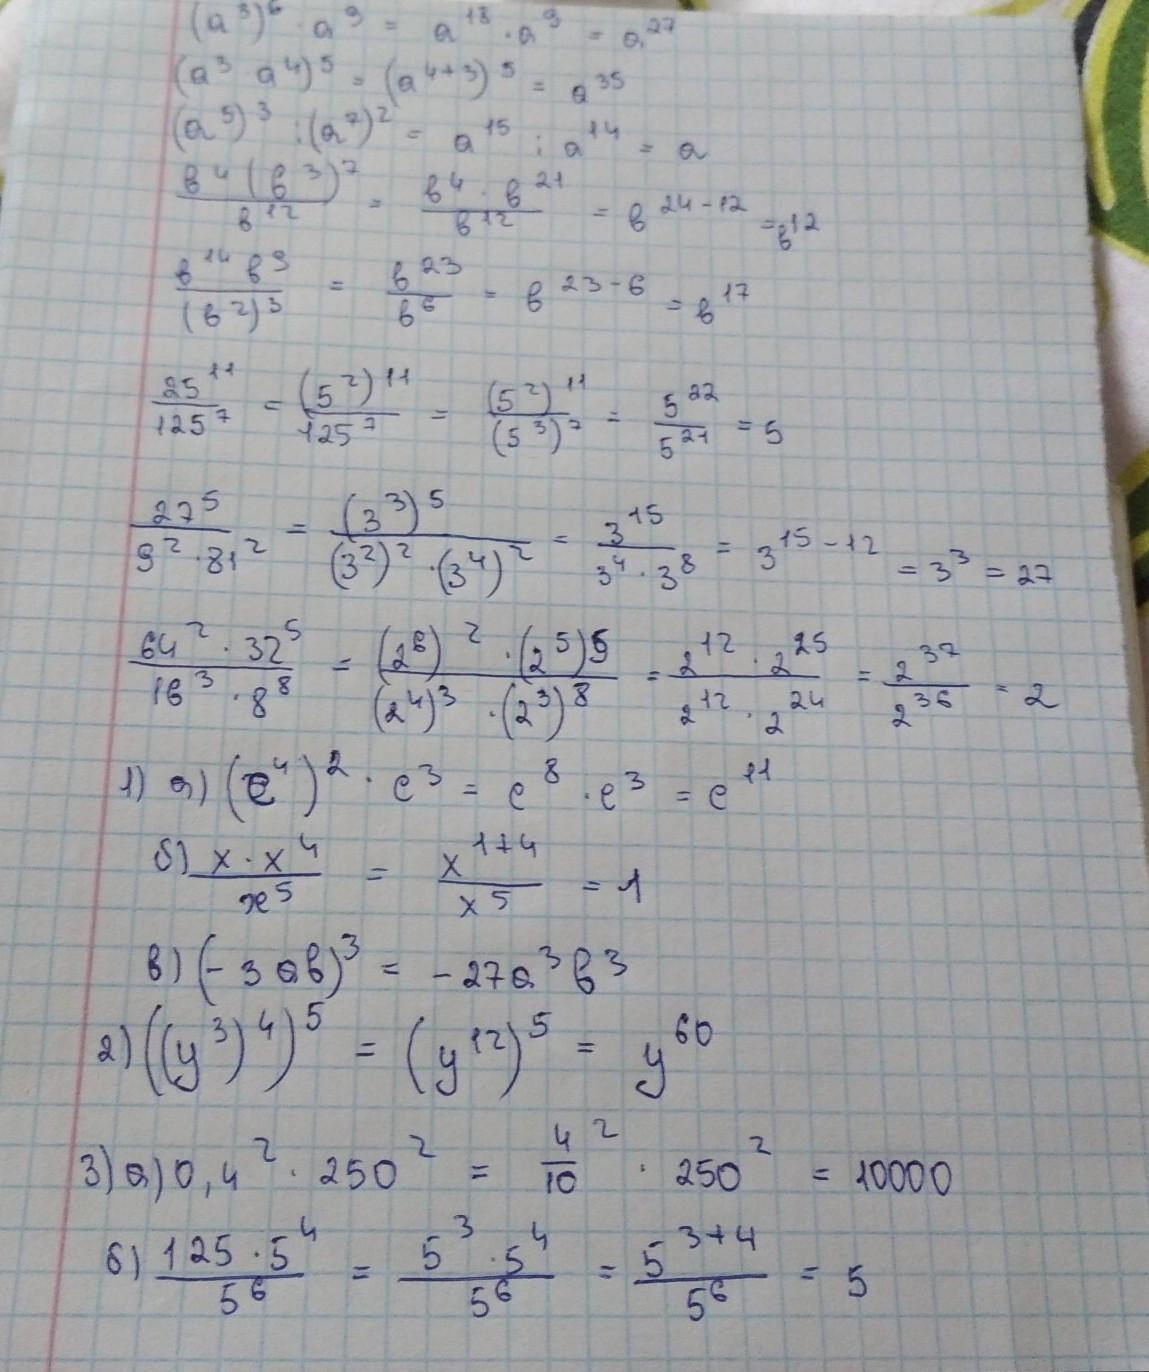 (a³)⁶ · a⁹ = a¹⁸ · a⁹ = a²⁷
(a³ a⁴)⁵ = (a⁴⁺³)⁵ = a³⁵
(a⁵)³ : (a⁷)² = a¹⁵ : a¹⁴ = a
в⁴(в³)⁷/в¹² = в⁴ · в²¹/в¹² = в²⁴⁻¹² = в¹²
в¹⁴ в⁹/(в²)³ = в²³/в⁶ = в²³⁻⁶ = в¹⁷
25¹¹/125⁷ = (5²)¹¹/125⁷ = (5²)¹¹/(5³)⁷ = 5²²/5²¹ = 5
27⁵/9² · 81² = (3³)⁵/(3²)² · (3⁴)² = 3¹⁵/3⁴ · 3⁸ = 3¹⁵⁻¹² = 3³ = 27
64² · 32⁵/16³ · 8⁸ = (2⁶)² · (2⁵)5/(2⁴)³ · (2³)⁸ = 2¹² · 2²⁵/2¹² · 2²⁴ = 2³⁷/2³⁶ = 2
1) а) (c⁴)² · c³ = c⁸ · c³ = c¹¹
б) x · x⁴/x⁵ = x¹⁺⁴/x⁵ = 1
в) (-3ав)³ = -27а³в³
2) ((y³)⁴)⁵ = (y¹²)⁵ = y⁶⁰
3) а) 0,4² · 250² = 4/10² · 250² = 10000
б) 125 · 5⁴/5⁶ = 5³ · 5⁴/5⁶ = 5³⁺⁴/5⁶ = 5